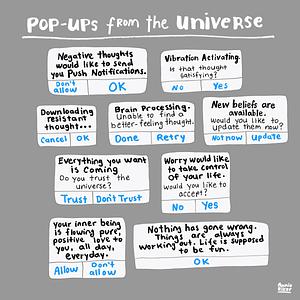 POP-UPS from the UNIVERSE
Negative thoughts
would like to send
you Push Notifications.
Don't
allow
OK
Vibration Activating.
Is that thought
satisfying?
No Yes
Downloading
resistant
thought...
Cancel OK
Brain Processing.
Unable to find a
better-feeling thought.
Done Retry
New beliefs are
available.
Would you like to
update them now?
Not now Update
Everything you want
is Coming
Do you trust the
universe?
Trust Don't Trust
Worry would like
to take control
of your life.
Would you like to
accept?
No Yes
Your inner being
is flowing pure,
positive love to
you, all day,
everyday.
Allow Don't
allow
Nothing has gone wrong.
Things are always
working out. Life is supposed
to be fun.
OK